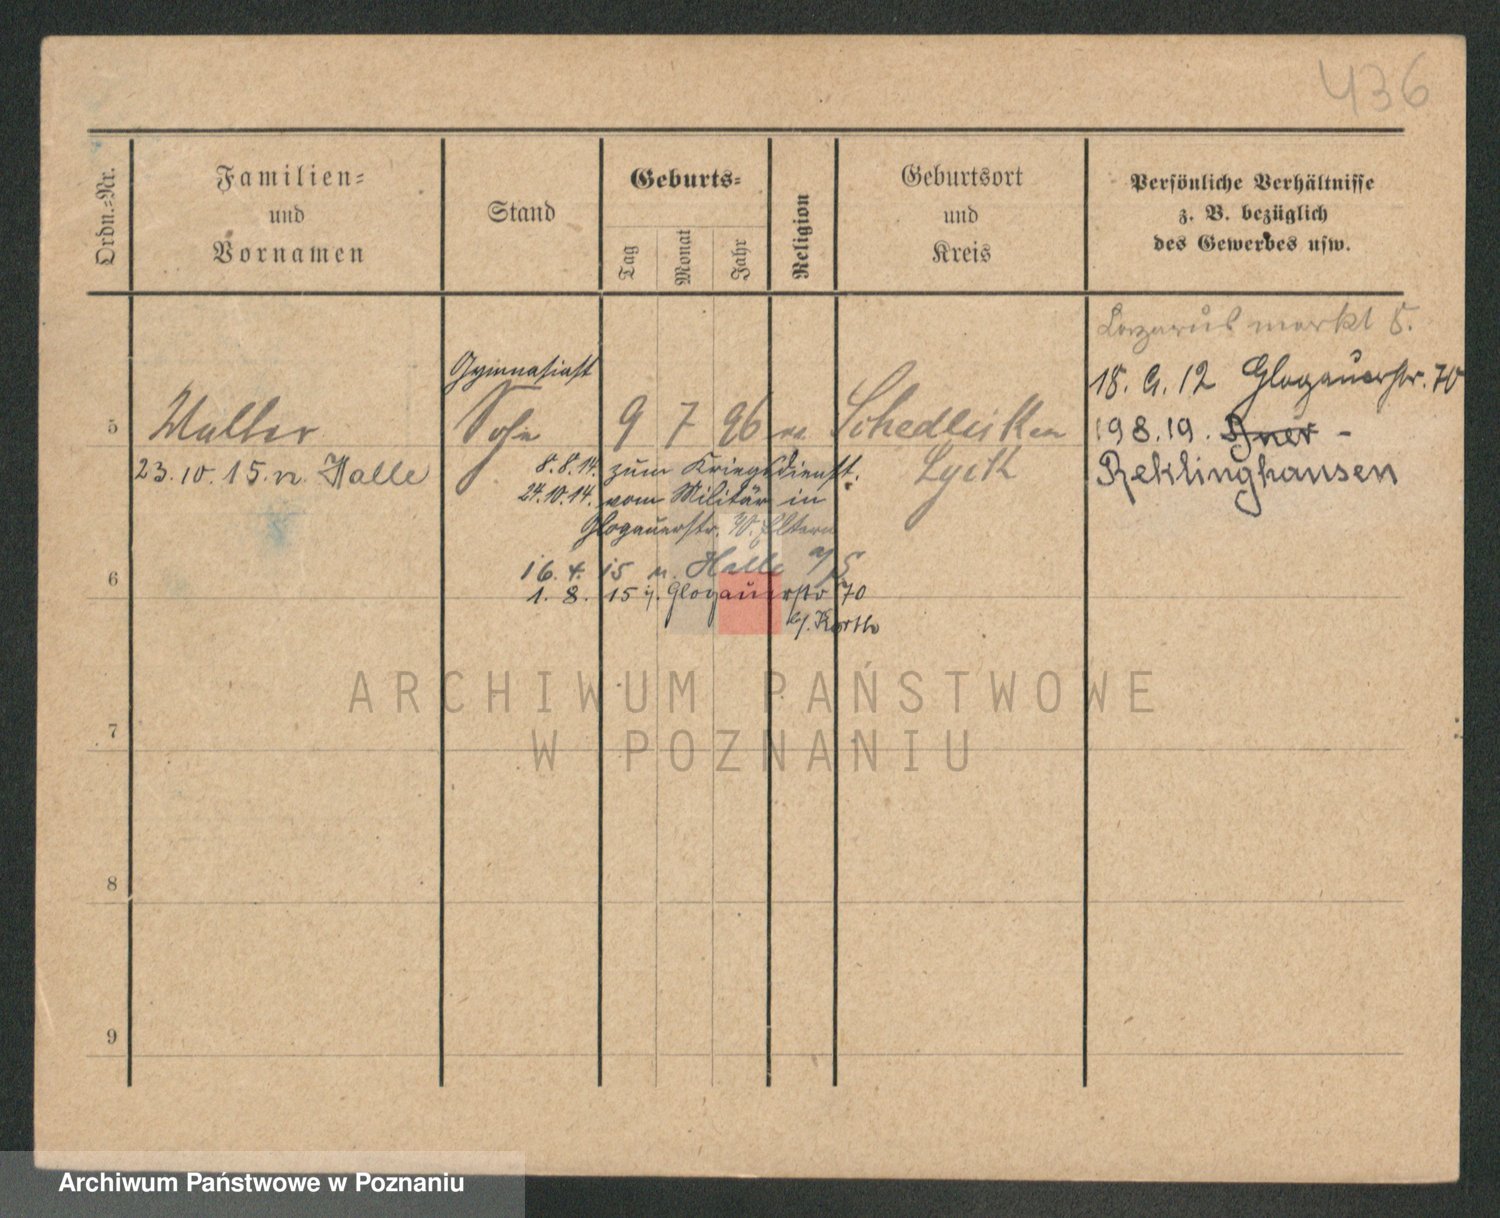 436
Ordn.-Nr.
Familien-
und
Vornamen
Stand
Geburts-
Tag
Monat
Jahr
Religion
Geburtsort
und
Kreis
Persönliche Verhältnisse
z. B. bezüglich
des Gewerbes usw.
Lazarus markt 5.
Gymnasiast
18. 9. 12 Glogauerstr. 70
5 Walter Sohn 9 7 96 Schedlisken
19 8. 19.
23. 10. 15. n. Halle
8.8.14. zum Kriegsdienst.
Lyck
Reklinghausen
24.10.14. vom Militär in
Glogauerstr. 70. Eltern
16. 4. 15 n. Halle a/S
6
1. 8. 15 Glogauerstr 70
ARCHIWUM PAŃSTWOWE
W POZNANIU
7
8
9
Archiwum Państwowe w Poznaniu